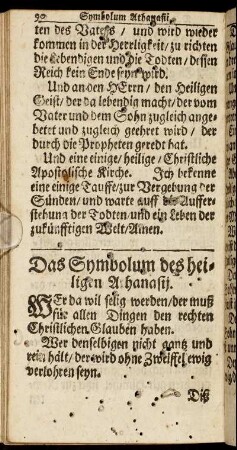 90 Symbolum Athanasii
ten des Vaters / und wird wieder
kommen in der Herrligkeit / zu richten
die Lebendigen und die Todten / dessen
Reich kein Ende seyn wird.
Und an den HErrn / den Heiligen
Geist / der da lebendig macht / der vom
Vater und dem Sohn zugleich ange-
betet und zugleich geehret wird / der
durch die Propheten geredt hat.
Und eine einige / heilige / Christliche
Apostolische Kirche. Ich bekenne
eine einige Tauffe / zur Vergebung der
Sünden / und warte auff die Auffer-
stehung der Todten / und ein Leben der
zukünfftigen Welt / Amen.
Das Symbolum des hei-
ligen Athanasij.
WEr da wil selig werden / der muß
für allen Dingen den rechten
Christlichen Glauben haben.
Wer denselbigen nicht gantz und
rein hält / der wird ohne Zweiffel ewig
verlohren seyn.
Diß